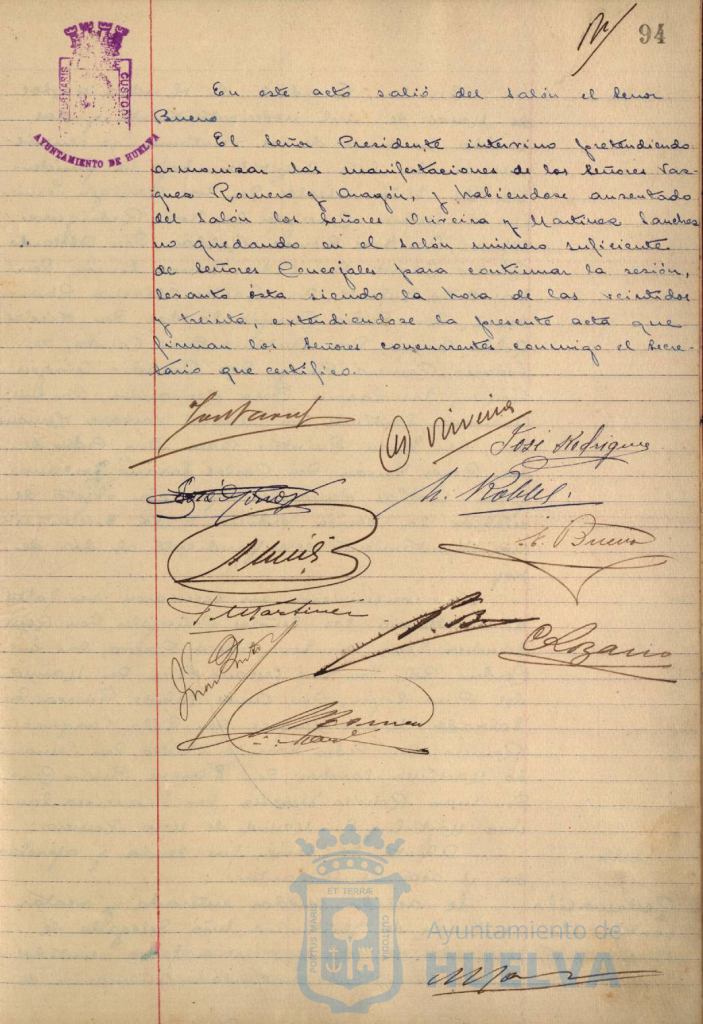 94
PORTUS MARIS CUSTODIA
AYUNTAMIENTO DE HUELVA
En este acto salió del salón el Señor
Bueno
El Señor Presidente intervino pretendiendo
armonizar las manifestaciones de los Señores Vaz-
quez Romero y Aragón, y habiendose ausentado
del salón los Señores Oliveira y Martinez Sanchez
no quedando en el salón número suficiente
de Señores Concejales para continuar la sesión,
levantó ésta siendo la hora de las veintidos
y treinta, extendiendose la presente acta que
firman los Señores concurrentes conmigo el Secre-
tario que certifico.
José Rodriguez
M. Robles.
A. Bueno
F. Martinez
C. Lozano
ET TERRÆ
PORTUS MARIS
CUSTODIA
Ayuntamiento de
HUELVA